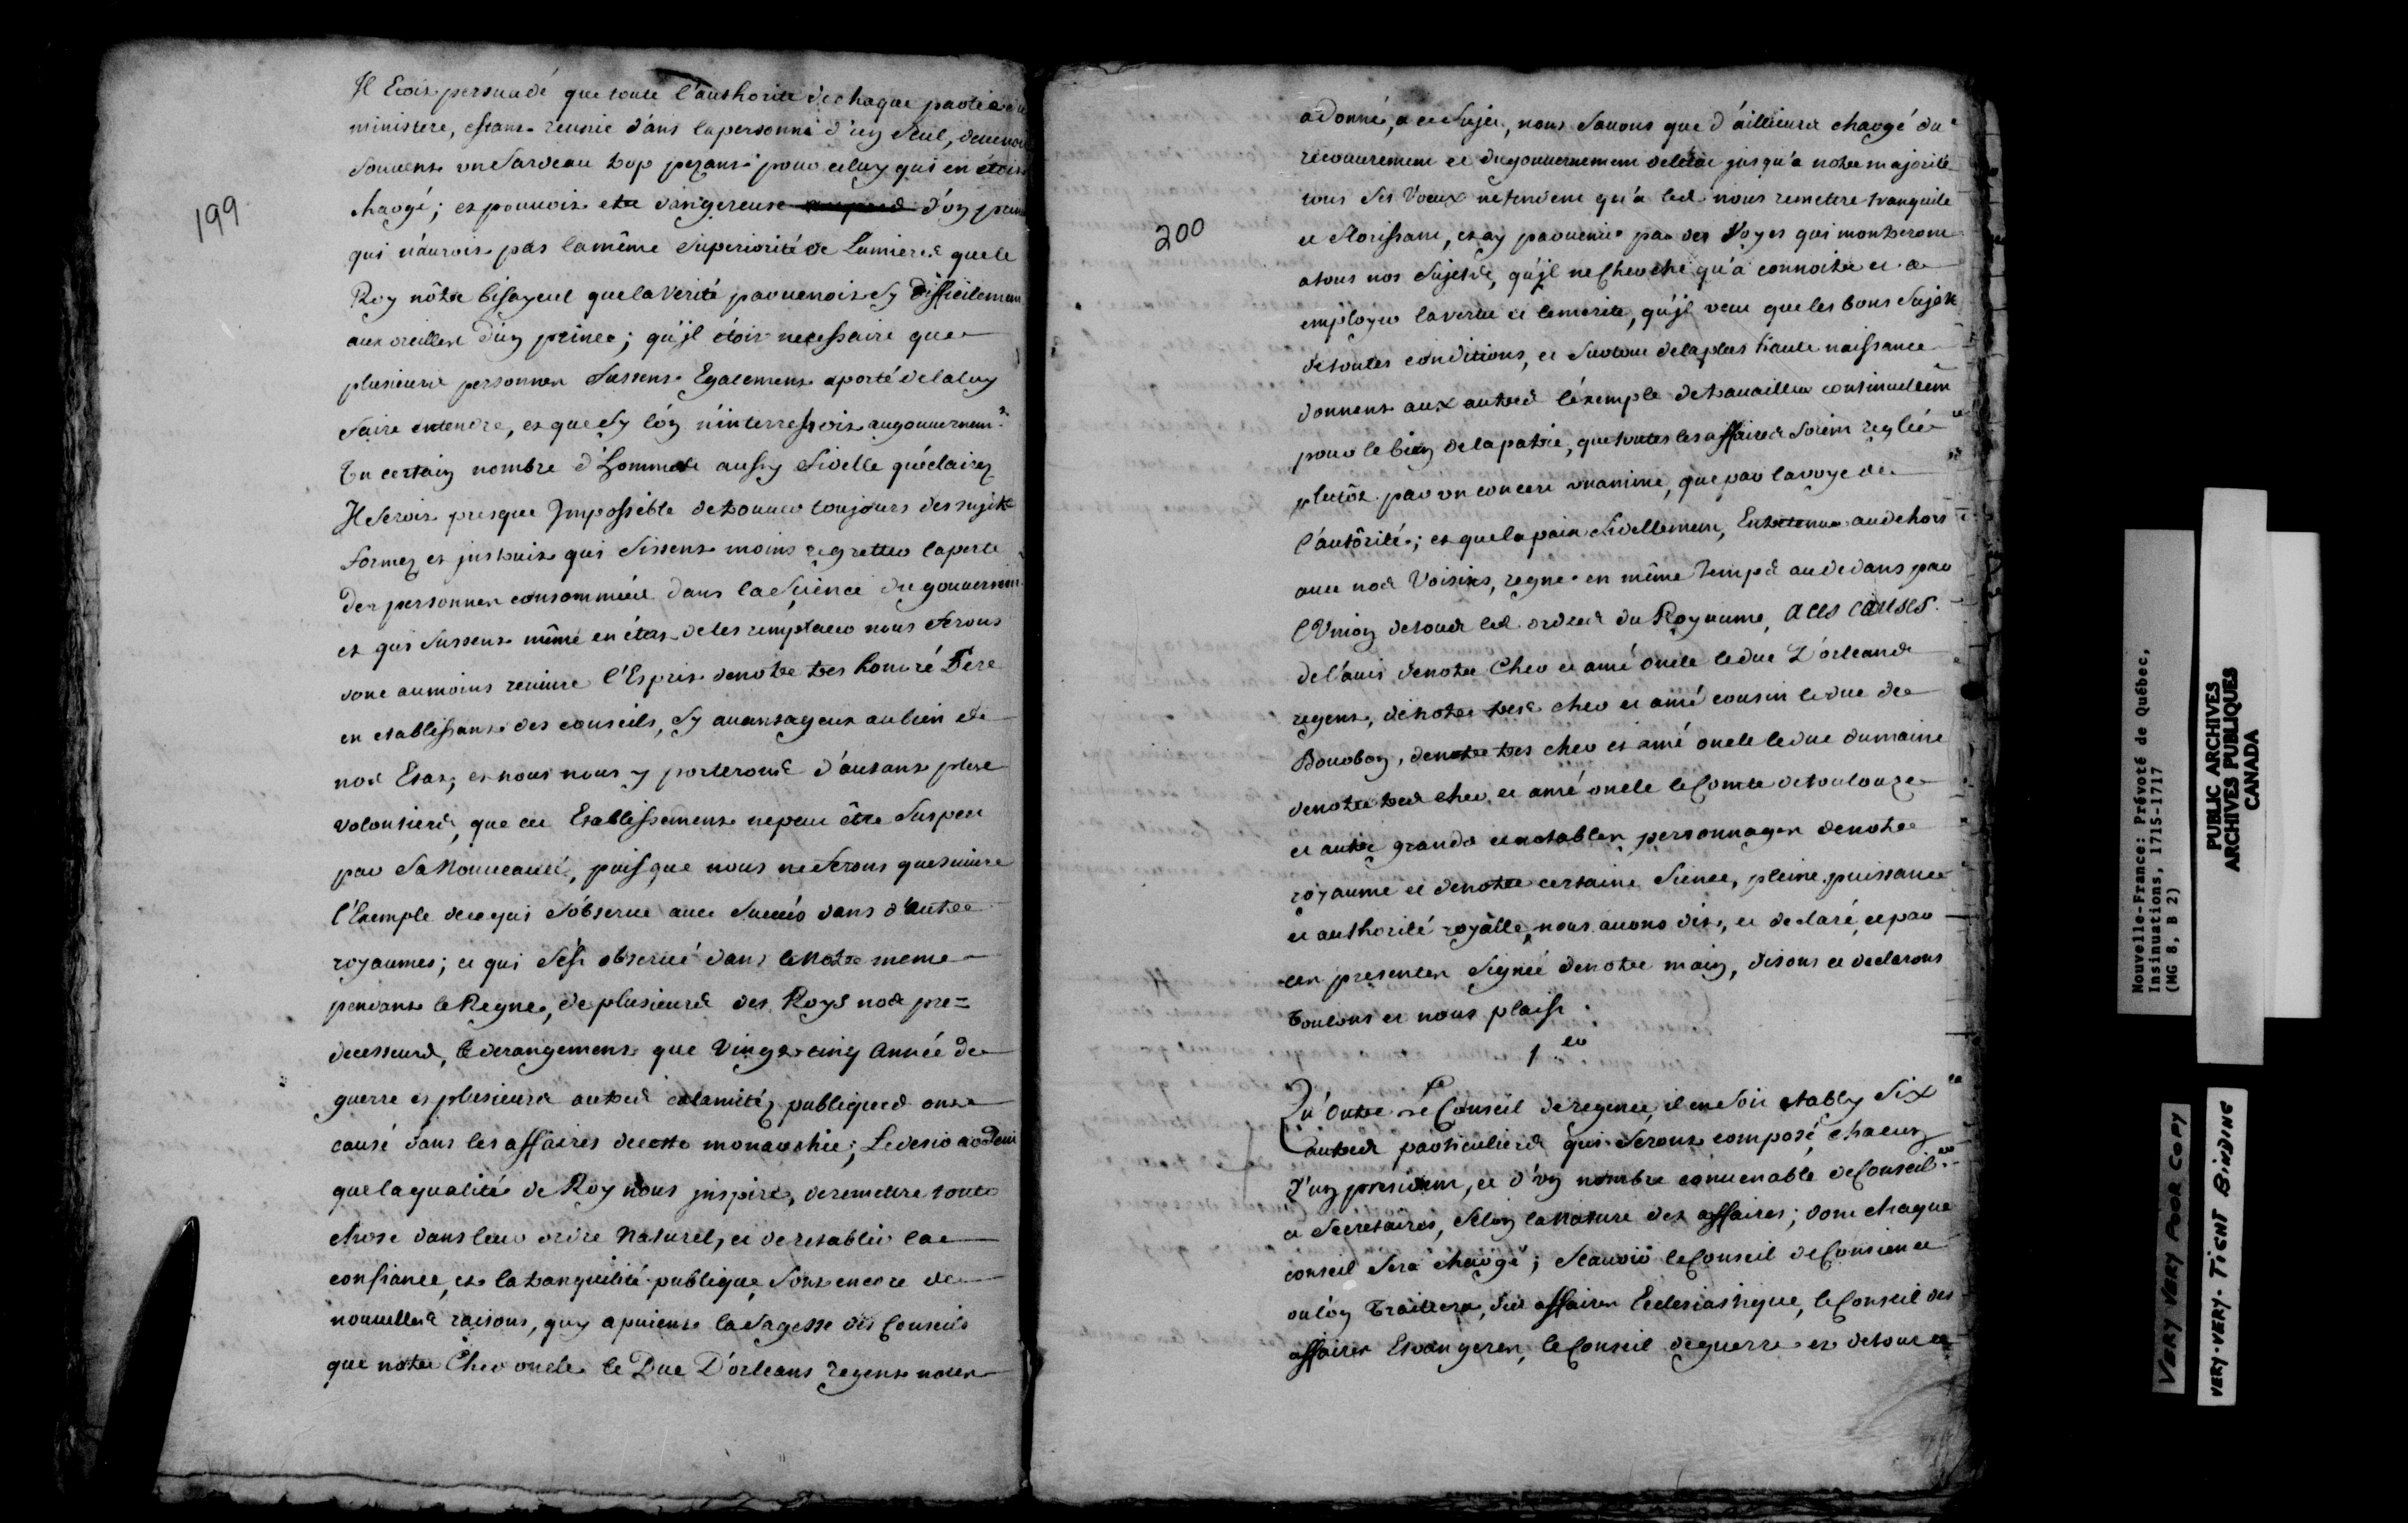 199
Il Etoit persuadé que toute l'authorité de chaque partie du
ministere, estant reunie dans la personne d'un seul, devenoit
souvent un fardeau trop pezant pour celuy qui en étoit
chargé; et pouvoit etre dangereuse d'un prince
qui n'auroit pas la même superiorité de Lumieres que le
Roy nôtre bisayeul que la Verité parvenoit sy difficilement
aux oreilles d'un prince; qu'jl étoit necessaire que
plusieurs personnes fussent Egalement a porté de la luy
faire entendre, et que sy l'on n'interressoit au gouvernemt.
Un certain nombre d'hommes aussy fidelle qu'éclairez
Il seroit presque Jmpossible de trouver toujours des sujets
formez et jnstruits qui fissent moins regretter la perte
des personnes consommées dans la Science du gouvernem.
et qui fussent même en état de les remplacer nous ferons
donc au moins revivre l'Esprit de notre tres honoré Pere
en etablissant des conseils, sy avantageux au bien de
nos Etat; et nous nous y porterons d'autant plus
volontiers, que cet Etablissement ne peut être suspect
par sa Nouveauté, puisque nous ne ferons que suivre
l'Exemple de ce qui s'observe avec succés dans d'autre
royaumes; et qui s'est observé dans le Notre meme
pendant le Regne, de plusieurs des Roys nos pre=
decesseurs, le derangement que Vingt cinq Année de
guerre et plusieurs autres calamitéz publiques ont
causé dans les affaires de cette monarchie; Le desir ardent
que la qualité de Roy nous jnspire, de remettre toute
chose dans leur ordre Naturel, et de retablir la
confiance, et la tranquilité publique, sont encore de
nouvelles raisons, quy apuient la Sagesse des Conseils
que notre Cher oncle le Duc D'orleans regent nous
200
a donné, a ce sujet, nous savons que d'ailleurs chargé du
recouvrement et du gouvernement de l'état jusqu'a notre majorité
tous ses Voeux ne tendent qu'a les nous remettre tranquile
et florissant, et ay parvenir par des Voyes qui montreront
a tous nos sujets, qu'jl ne Cherche qu'a connoitre et a
employer la vertu et le merite, qu'jl veut que les bons sujets
de toutes conditions, et surtout de la plus haute naissance
donnent aux autres l'éxemple de travailler continuellemt
pour le bien de la patrie, que toutes les affaires soient reglée
plutôt par un concert unanime, que par la voye de
l'autôrité; et que la paix fidellement, Entretenue au dehors
avec nos Voisins, regne en même temps au dedans par
l'Union de tous les ordres du Royaume, A CES CAUSES.
de l'avis de notre Cher et amé oncle le duc D'orleans
regent, de notre tres cher et amé cousin le duc de
Bourbon, de notre tres cher et amé oncle le duc du maine
de notre tres cher et amé oncle le Comte de toulouze
et autre grands et notables personnages de notre
royaume et de notre certaine Sience, pleine puissance
et authorité royâlle, nous avons dit, et declaré, et par
ces presentes Signée de notre main, disons et declarons
Voulons et nous plaist.
1.er
Qu'outre le Conseil de regence, il en soit etably Six
autres particuliers qui seront composé, chacun
D'un president, et d'un nombre convenable de Conseil.ers
et Secretaires, selon la Nature des affaires; dont chaque
conseil sera chargé; Scavoir le Conseil de Conscience
ou l'on traittera, des affaires Eclesiastique, le Conseil des
affaires Etrangeres, le Conseil de guerre et de tout ce
Nouvelle-France: Prévoté de Québec,
Insinuations, 1715-1717
(MG 8, B 2)
PUBLIC ARCHIVES
ARCHIVES PUBLIQUES
CANADA
VERY VERY POOR COPY
VERY-VERY-TIGHT BINDING